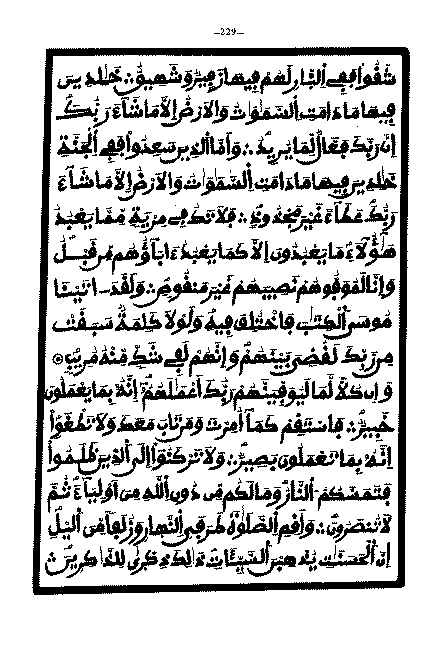 –229–
شَقُوا۟ فَفِى ٱلنَّارِ لَهُمْ فِيهَا زَفِيرٌ وَشَهِيقٌ ∴ خَٰلِدِينَ
فِيهَا مَا دَامَتِ ٱلسَّمَٰوَٰتُ وَٱلْأَرْضُ إِلَّا مَا شَآءَ رَبُّكَ
إِنَّ رَبَّكَ فَعَّالٌ لِّمَا يُرِيدُ ∴ وَأَمَّا ٱلَّذِينَ سَعِدُوا۟ فَفِى ٱلْجَنَّةِ
خَٰلِدِينَ فِيهَا مَا دَامَتِ ٱلسَّمَٰوَٰتُ وَٱلْأَرْضُ إِلَّا مَا شَآءَ
رَبُّكَ عَطَآءً غَيْرَ مَجْذُوذٍ ∴ فَلَا تَكُ فِى مِرْيَةٍ مِّمَّا يَعْبُدُ
هَٰٓؤُلَآءِ مَا يَعْبُدُونَ إِلَّا كَمَا يَعْبُدُ ءَابَآؤُهُم مِّن قَبْلُ
وَإِنَّا لَمُوَفُّوهُمْ نَصِيبَهُمْ غَيْرَ مَنقُوصٍ ∴ وَلَقَدْ ءَاتَيْنَا
مُوسَى ٱلْكِتَٰبَ فَٱخْتُلِفَ فِيهِ وَلَوْلَا كَلِمَةٌ سَبَقَتْ
مِن رَّبِّكَ لَقُضِىَ بَيْنَهُمْ وَإِنَّهُمْ لَفِى شَكٍّ مِّنْهُ مُرِيبٍ
وَإِن كُلًّا لَمَا لَيُوَفِّيَنَّهُمْ رَبُّكَ أَعْمَٰلَهُمْ إِنَّهُۥ بِمَا يَعْمَلُونَ
خَبِيرٌ ∴ فَٱسْتَقِمْ كَمَآ أُمِرْتَ وَمَن تَابَ مَعَكَ وَلَا تَطْغَوْا۟
إِنَّهُۥ بِمَا تَعْمَلُونَ بَصِيرٌ ∴ وَلَا تَرْكَنُوٓا۟ إِلَى ٱلَّذِينَ ظَلَمُوا۟
فَتَمَسَّكُمُ ٱلنَّارُ وَمَا لَكُم مِّن دُونِ ٱللَّهِ مِنْ أَوْلِيَآءَ ثُمَّ
لَا تُنصَرُونَ ∴ وَأَقِمِ ٱلصَّلَوٰةَ طَرَفَىِ ٱلنَّهَارِ وَزُلَفًا مِّنَ ٱلَّيْلِ
إِنَّ ٱلْحَسَنَٰتِ يُذْهِبْنَ ٱلسَّيِّـَٔاتِ ذَٰلِكَ ذِكْرَىٰ لِلذَّٰكِرِينَ